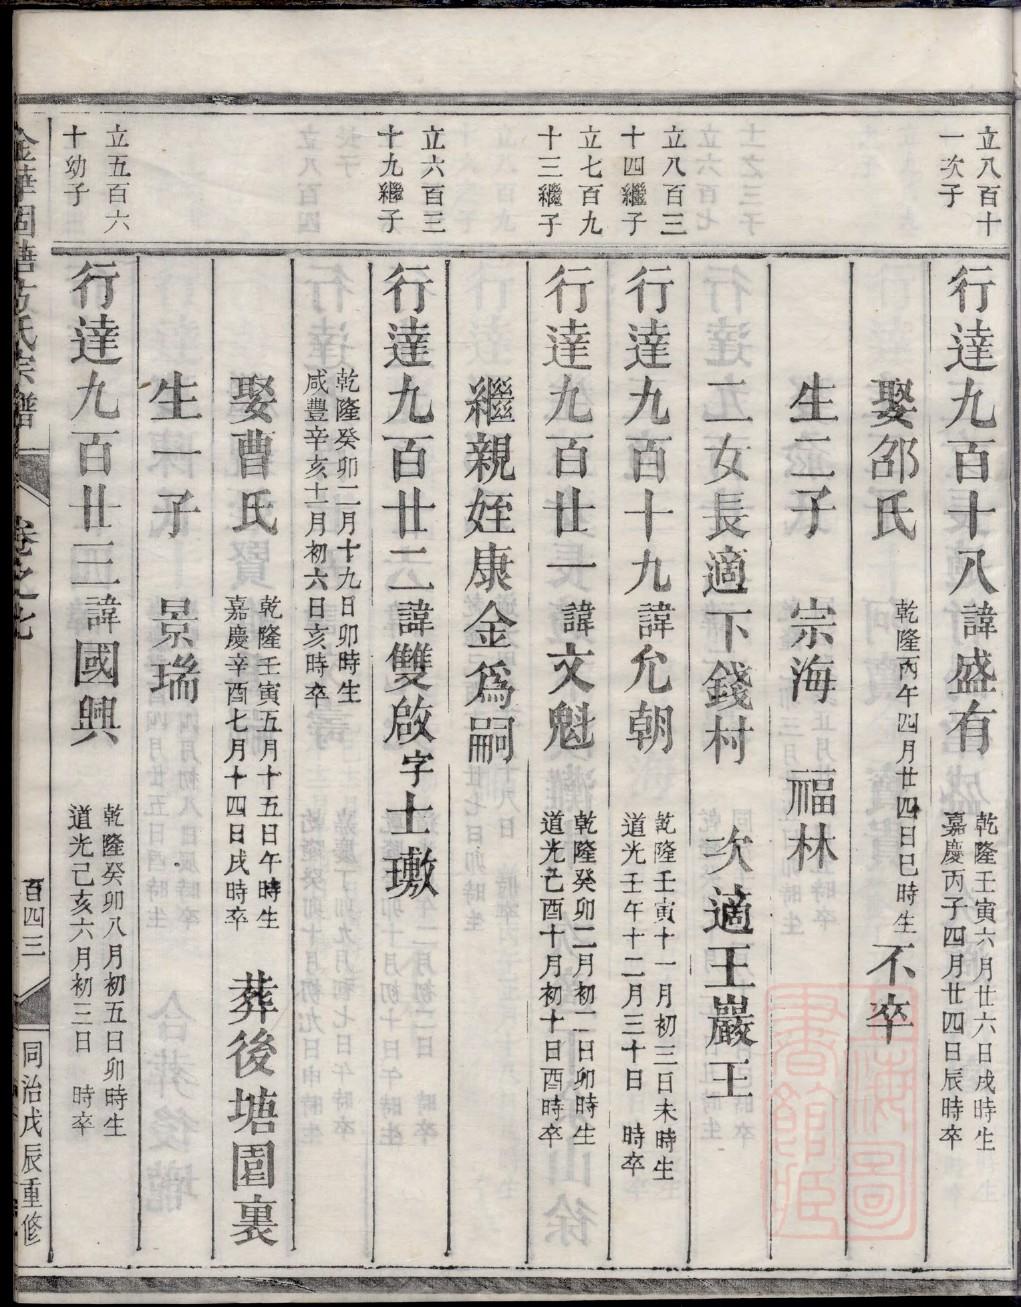 立八百十
一次子
行達九百十八諱盛有
乾隆壬寅六月廿六日戌時生
嘉慶丙子四月廿四日辰時卒
娶邵氏
乾隆丙午四月廿四日巳時生
不卒
生二子 宗海 福林
二女長適下錢村 次適王巖王
立八百三
十四繼子
行達九百十九諱允朝
乾隆壬寅十一月初三日未時生
道光壬午十二月三十日 時卒
立七百九
十三繼子
行達九百廿一諱文魁
乾隆癸卯二月初二日卯時生
道光己酉十月初十日酉時卒
繼親姪康金爲嗣
立六百三
十九繼子
行達九百廿二諱雙啟字士璷
乾隆癸卯二月十九日卯時生
咸豐辛亥十一月初六日亥時卒
娶曹氏
乾隆壬寅五月十五日午時生
嘉慶辛酉七月十四日戌時卒
葬後塘園裏
生一子 景瑞
立五百六
十幼子
行達九百廿三諱國興
乾隆癸卯八月初五日卯時生
道光己亥六月初三日 時卒
卷之七
百四三
同治戊辰重修